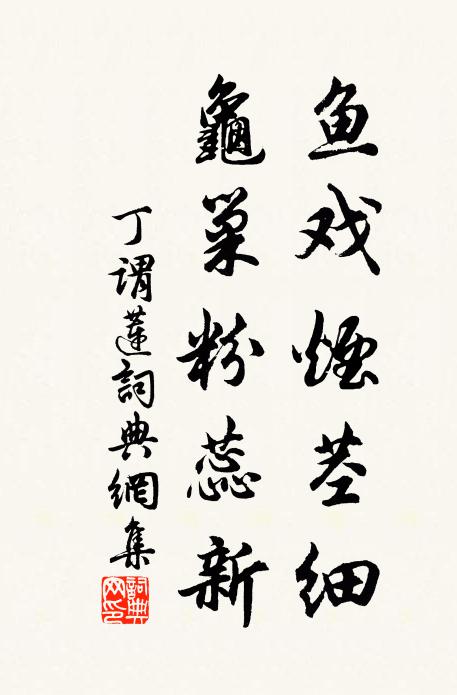 鱼戏煙茎细
龜巢粉蕊新
丁谓蓮詞典網集
詞典网印